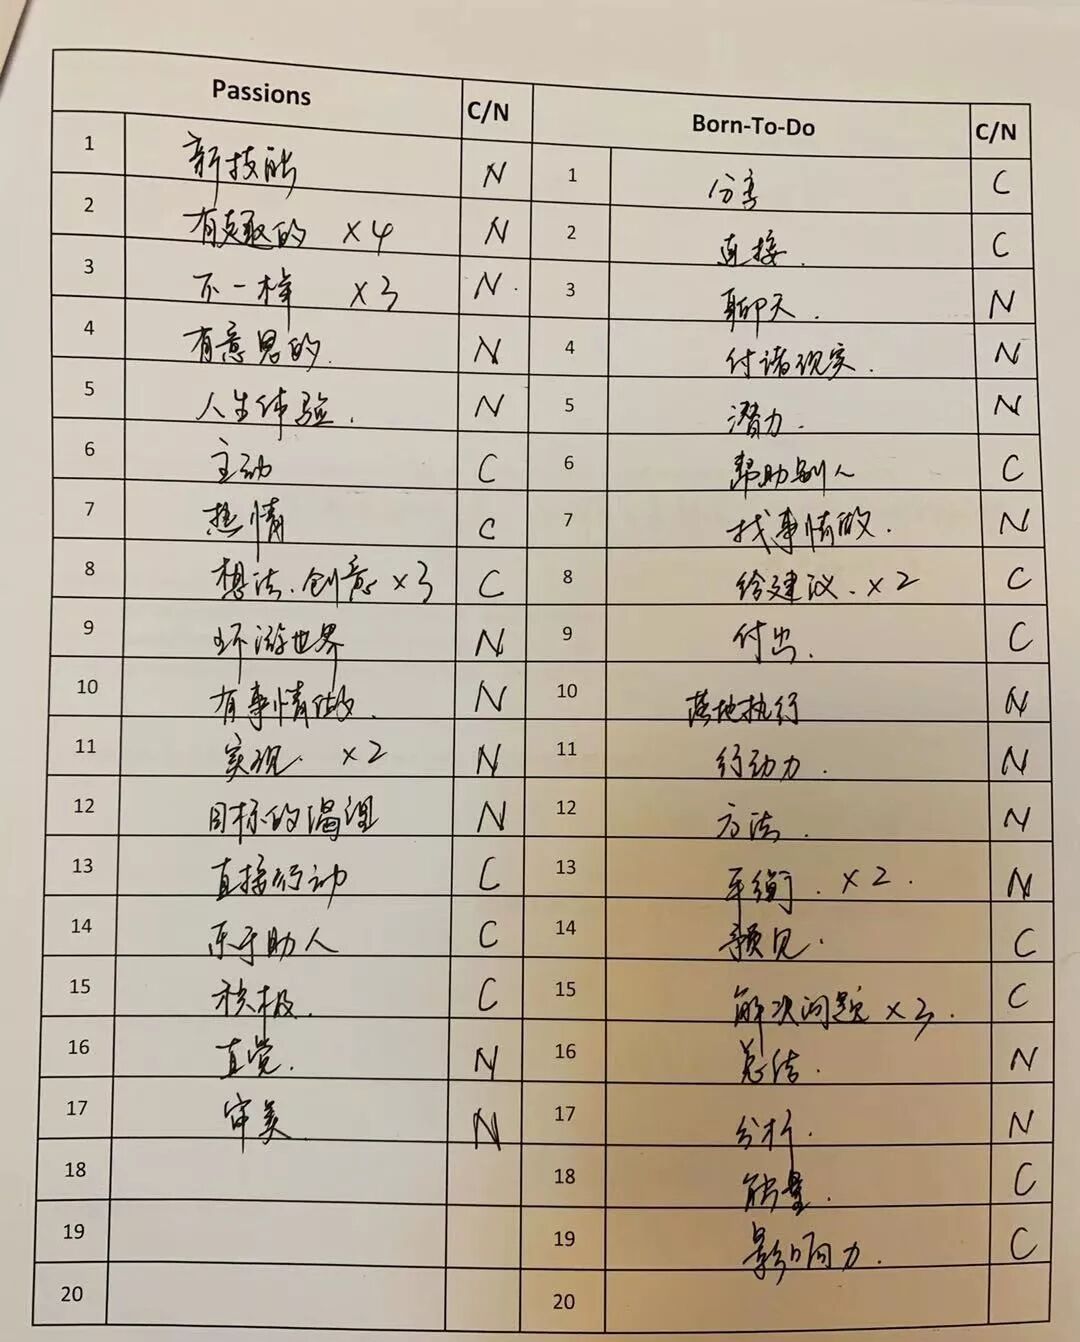 Passions C/N Born-To-Do C/N
1 新技能 N 1 分享 C
2 有趣的 ×4 N 2 直接. C
3 不一样 ×3 N. 3 聊天. N
4 有意思的. N 4 付诸现实. N
5 人生体验. N 5 潜力. N
6 主动 C 6 帮助别人 C
7 热情 C 7 找事情做. N
8 想法、创意 ×3 C 8 给建议. ×2 C
9 环游世界 N 9 付出. C
10 有事情做. N 10 落地执行 N
11 实现. ×2 N 11 行动力. N
12 目标的 N 12 方法. N
13 直接行动 C 13 平衡. ×2. N
14 乐于助人 C 14 预见. C
15 积极. C 15 解决问题 ×3. C
16 直觉. N 16 总结. N
17 审美 N 17 分析. N
18 18 能量. C
19 19 影响力. C
20 20